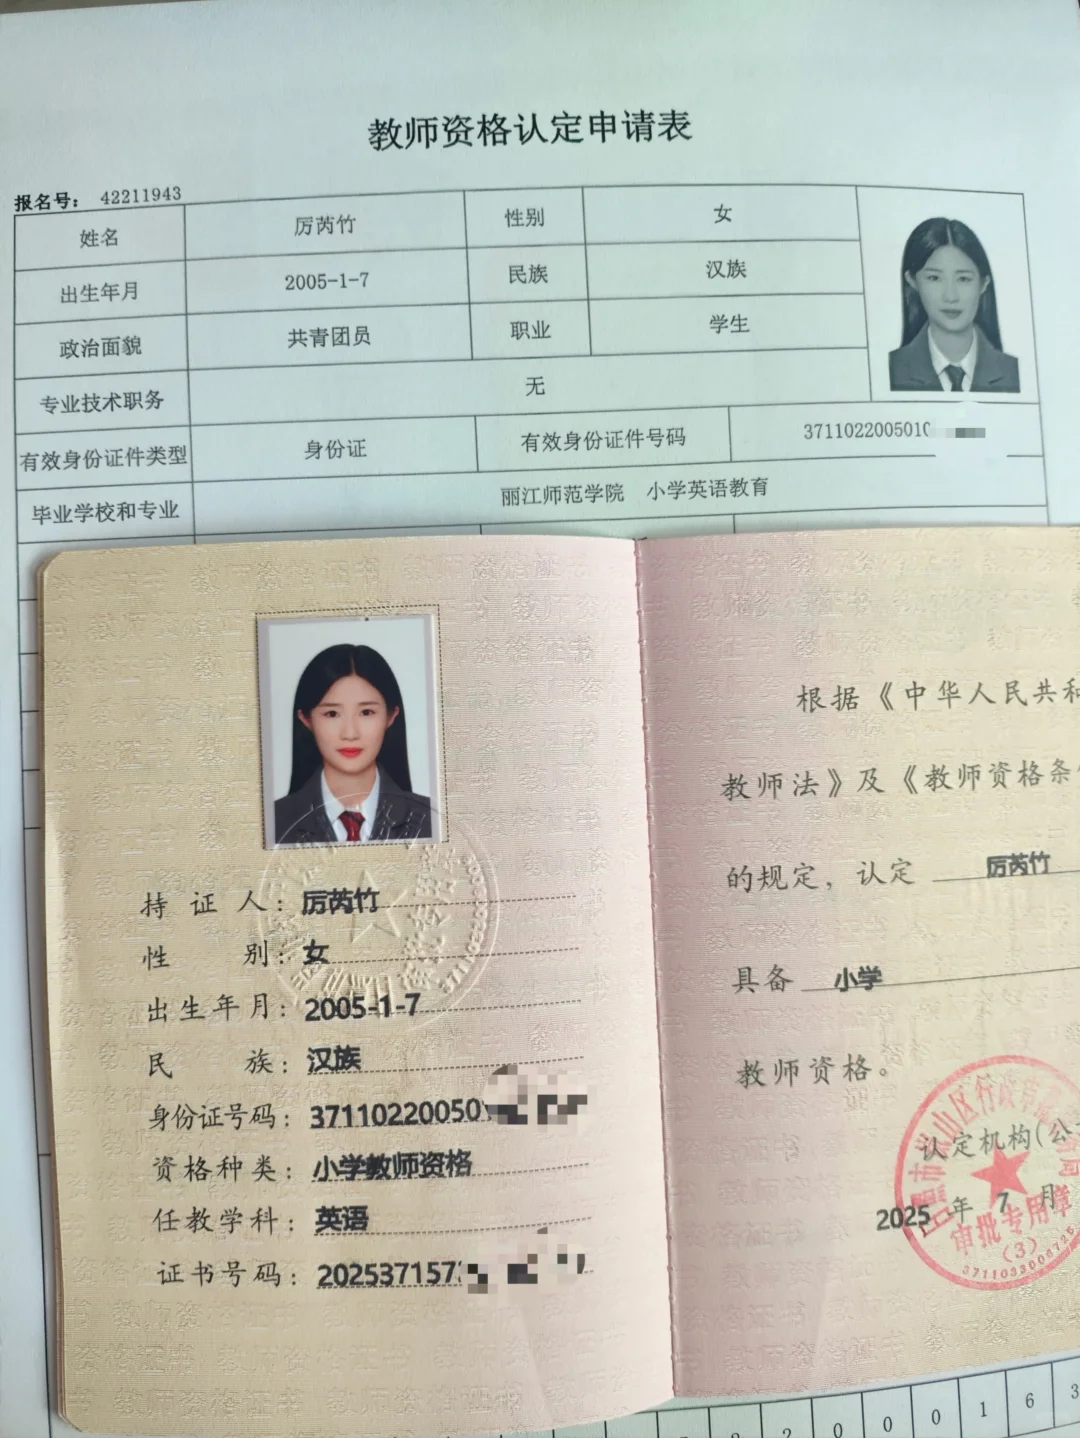 教师资格认定申请表
报名号: 42211943
姓名 厉芮竹 性别 女
出生年月 2005-1-7 民族 汉族
政治面貌 共青团员 职业 学生
专业技术职务 无
有效身份证件类型 身份证 有效身份证件号码 3711022005010
毕业学校和专业 丽江师范学院 小学英语教育
持证人: 厉芮竹
性别: 女
出生年月: 2005-1-7
民族: 汉族
身份证号码: 371102200501
资格种类: 小学教师资格
任教学科: 英语
证书号码: 2025371573
根据《中华人民共和
教师法》及《教师资格条
的规定，认定 厉芮竹
具备 小学
教师资格。
认定机构(公
2025 年 7 月
山区行政审
审批专用章
(3)
2 0 0 1 6 3